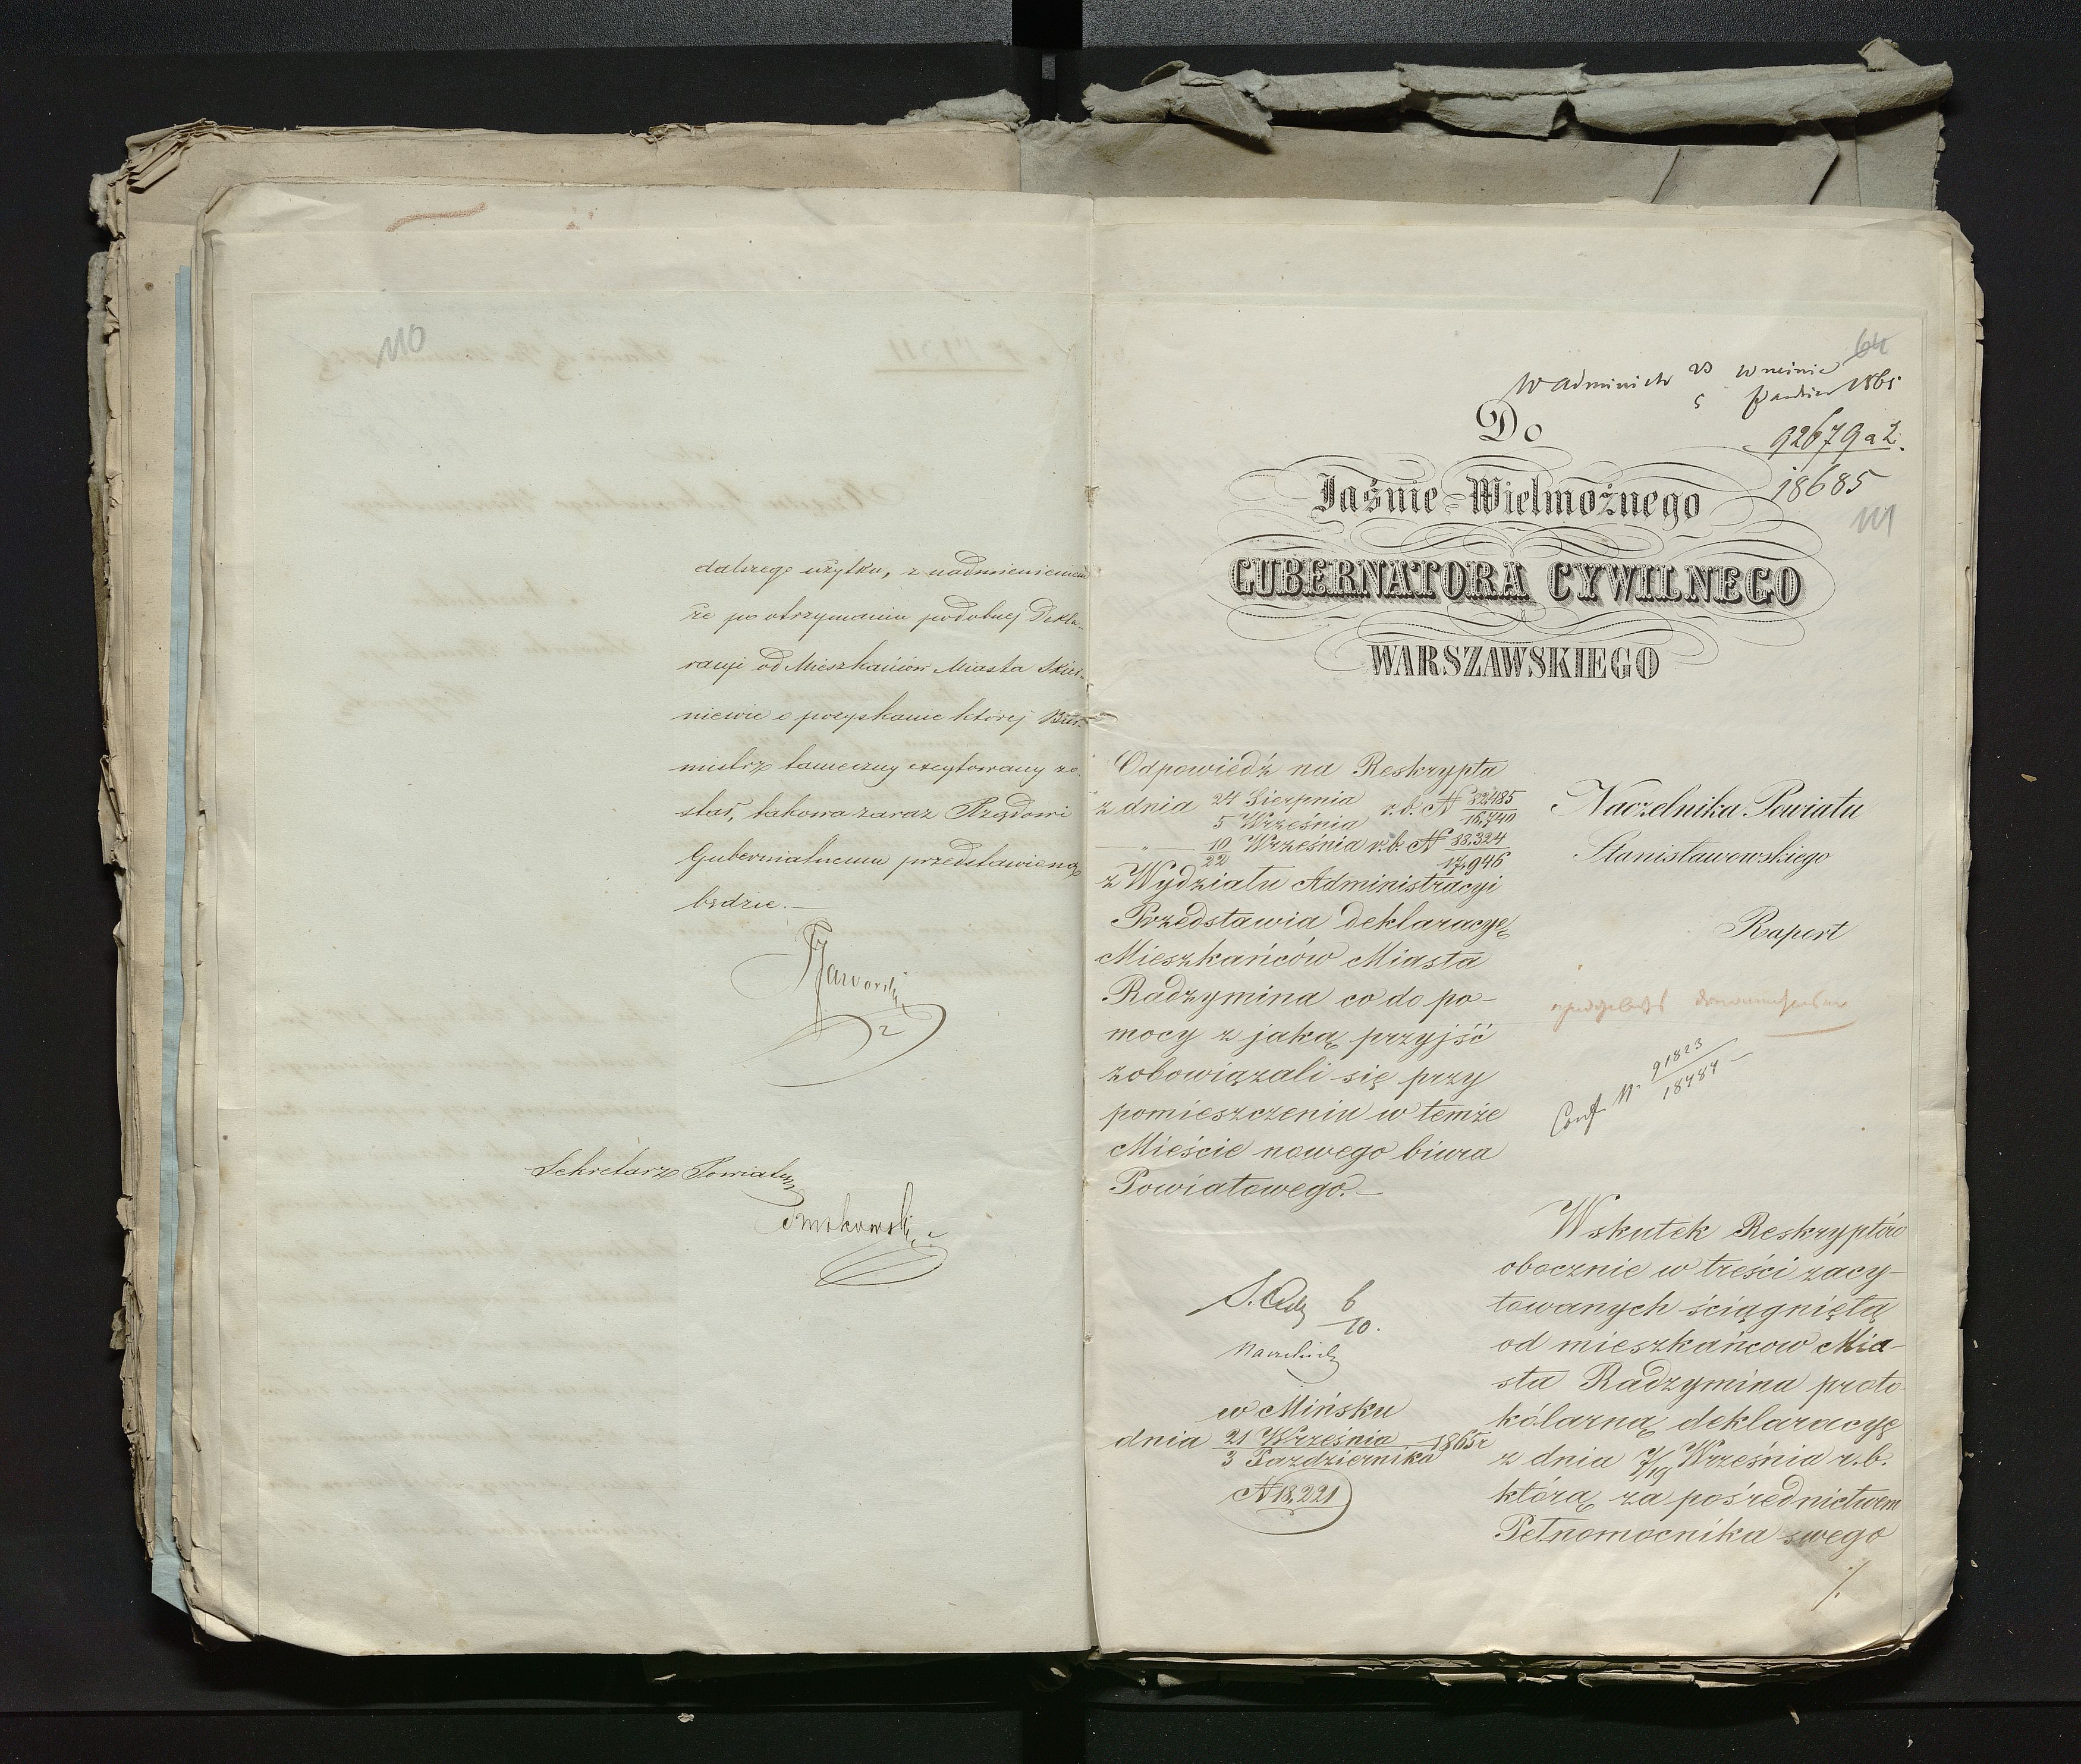 110
dalszego użytku, z nadmienieniem
że po otrzymaniu podobnej Dekla-
racyi od Mieszkańców Miasta Skier-
niewic o pozyskanie której Bur-
mistrz tameczny excytowany zo-
stał, takowa zaraz Rządowi
Gubernialnemu przedstawioną
będzie.—
Jaworski
Sekretarz Powiatu
64
W Administr 23 Wrzesnia
5 Pazdzier 1865
92679 a 2.
18685
111
Do
Jaśnie-Wielmożnego
GUBERNATORA CYWILNEGO
WARSZAWSKIEGO
Odpowiedź na Reskrypta
z dnia 24 Sierpnia / 5 Września r.b. N 82485/16,740
—„— 10/22 Września r.b. N 88.324/17,946
z Wydziału Administracyi
Przedstawia deklaracyę
Mieszkańców Miasta
Radzymina co do po-
mocy z jaką przyjść
zobowiązali się przy
pomieszczeniu w temże
Mieście nowego biura
Powiatowego.—
6/10.
w Mińsku
dnia 21 Września / 3 Pazdziernika 1865 r
N 18,221
Naczelnika Powiatu
Stanisławowskiego
Raport
Conf. N. 91823/18484 —
Wskutek Reskryptów
obocznie w treści zacy-
towanych ściągniętą
od mieszkańcow Mia-
sta Radzymina proto-
kólarną deklaracyę
z dnia 7/19 Września r.b.
którą za pośrednictwem
Pełnomocnika swego
./.